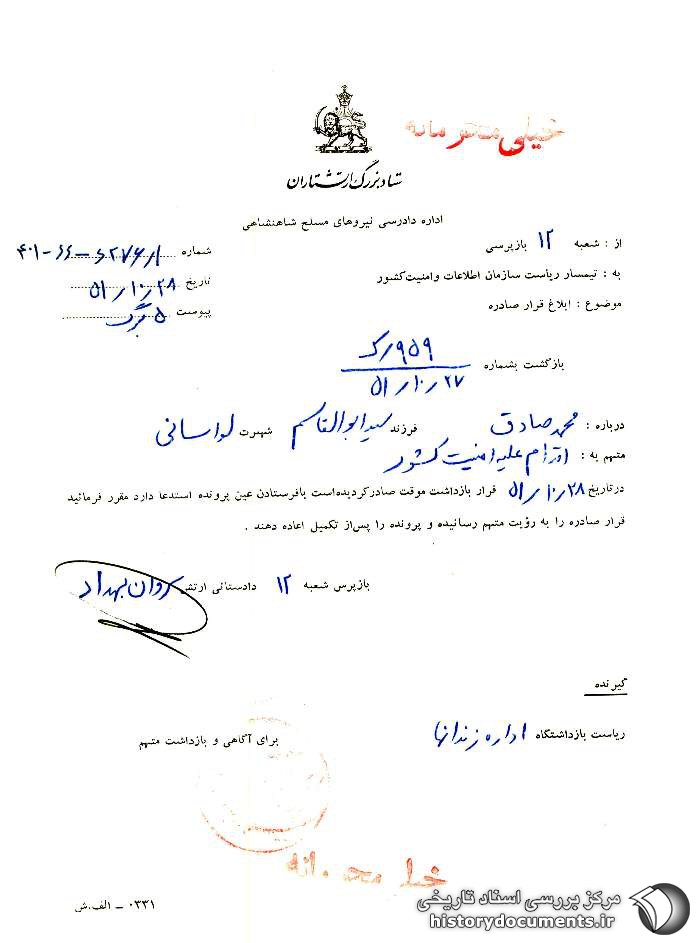 خیلی محرمانه
ستاد بزرگ ارتشتاران
اداره دادرسی نیروهای مسلح شاهنشاهی
از : شعبه ۱۲ بازپرسی
شماره ۴۰۱-۶۴-
به : تیمسار ریاست سازمان اطلاعات و امنیت کشور
تاریخ ۵۱/۱۰/۲۸
موضوع : ابلاغ قرار صادره
پیوست ۵ برگ
بازگشت بشماره ۹۵۹/ک
۵۱/۱۰/۲۷
درباره : محمد صادق فرزند سید ابوالقاسم شهرت لواسانی
متهم به : اقدام علیه امنیت کشور
درتاریخ ۵۱/۱۰/۲۸ قرار بازداشت موقت صادرگردیده‌است بافرستادن عین پرونده استدعا دارد مقرر فرمائید
قرار صادره را به رؤیت متهم رسانیده و پرونده را پس‌از تکمیل اعاده دهند .
بازپرس شعبه ۱۲ دادستانی ارتش سروان بهداد
گیرنده
ریاست بازداشتگاه اداره زندانها برای آگاهی و بازداشت متهم
خیلی محرمانه
۰۳۳۱ – الف.ش
مرکز بررسی اسناد تاریخی
historydocuments.ir